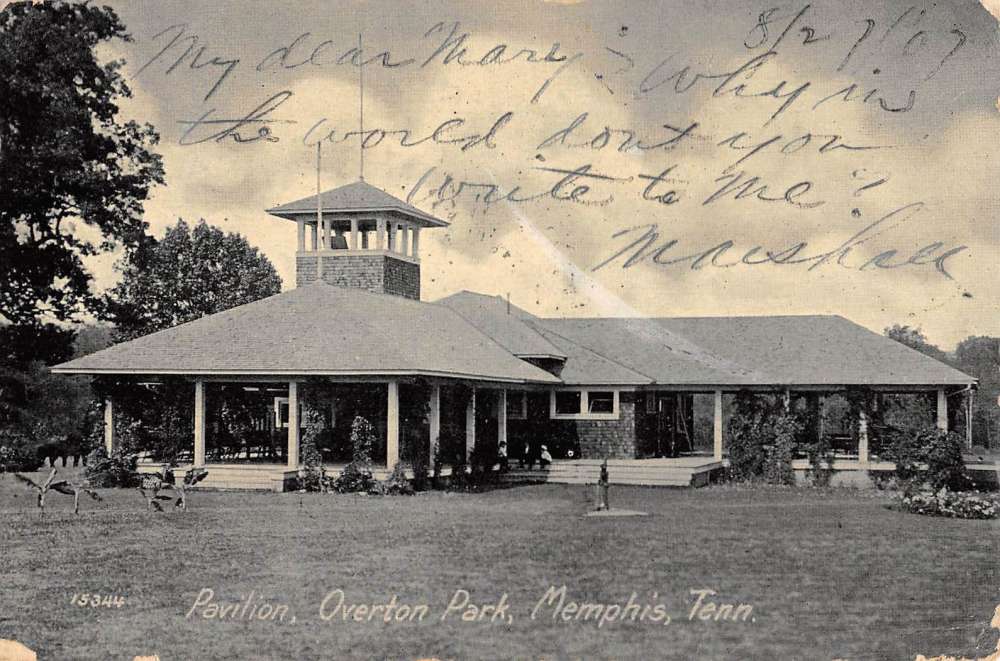 8/27/07
My dear Mary: Why in
the world don't you
write to me?
Marshall
15344
Pavilion, Overton Park, Memphis, Tenn.